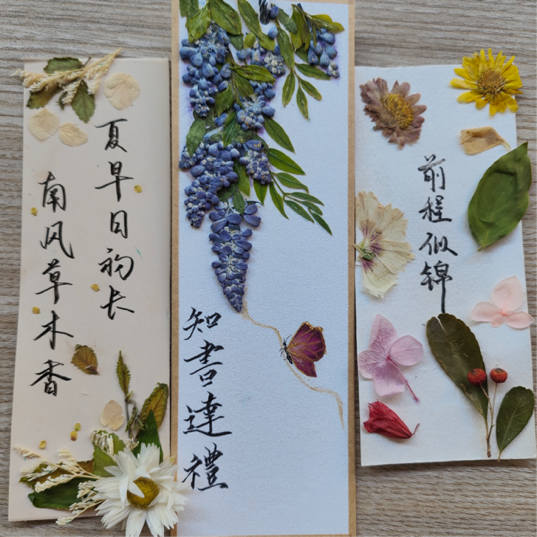 夏早日初长
南风草木香
知書達禮
前程似锦